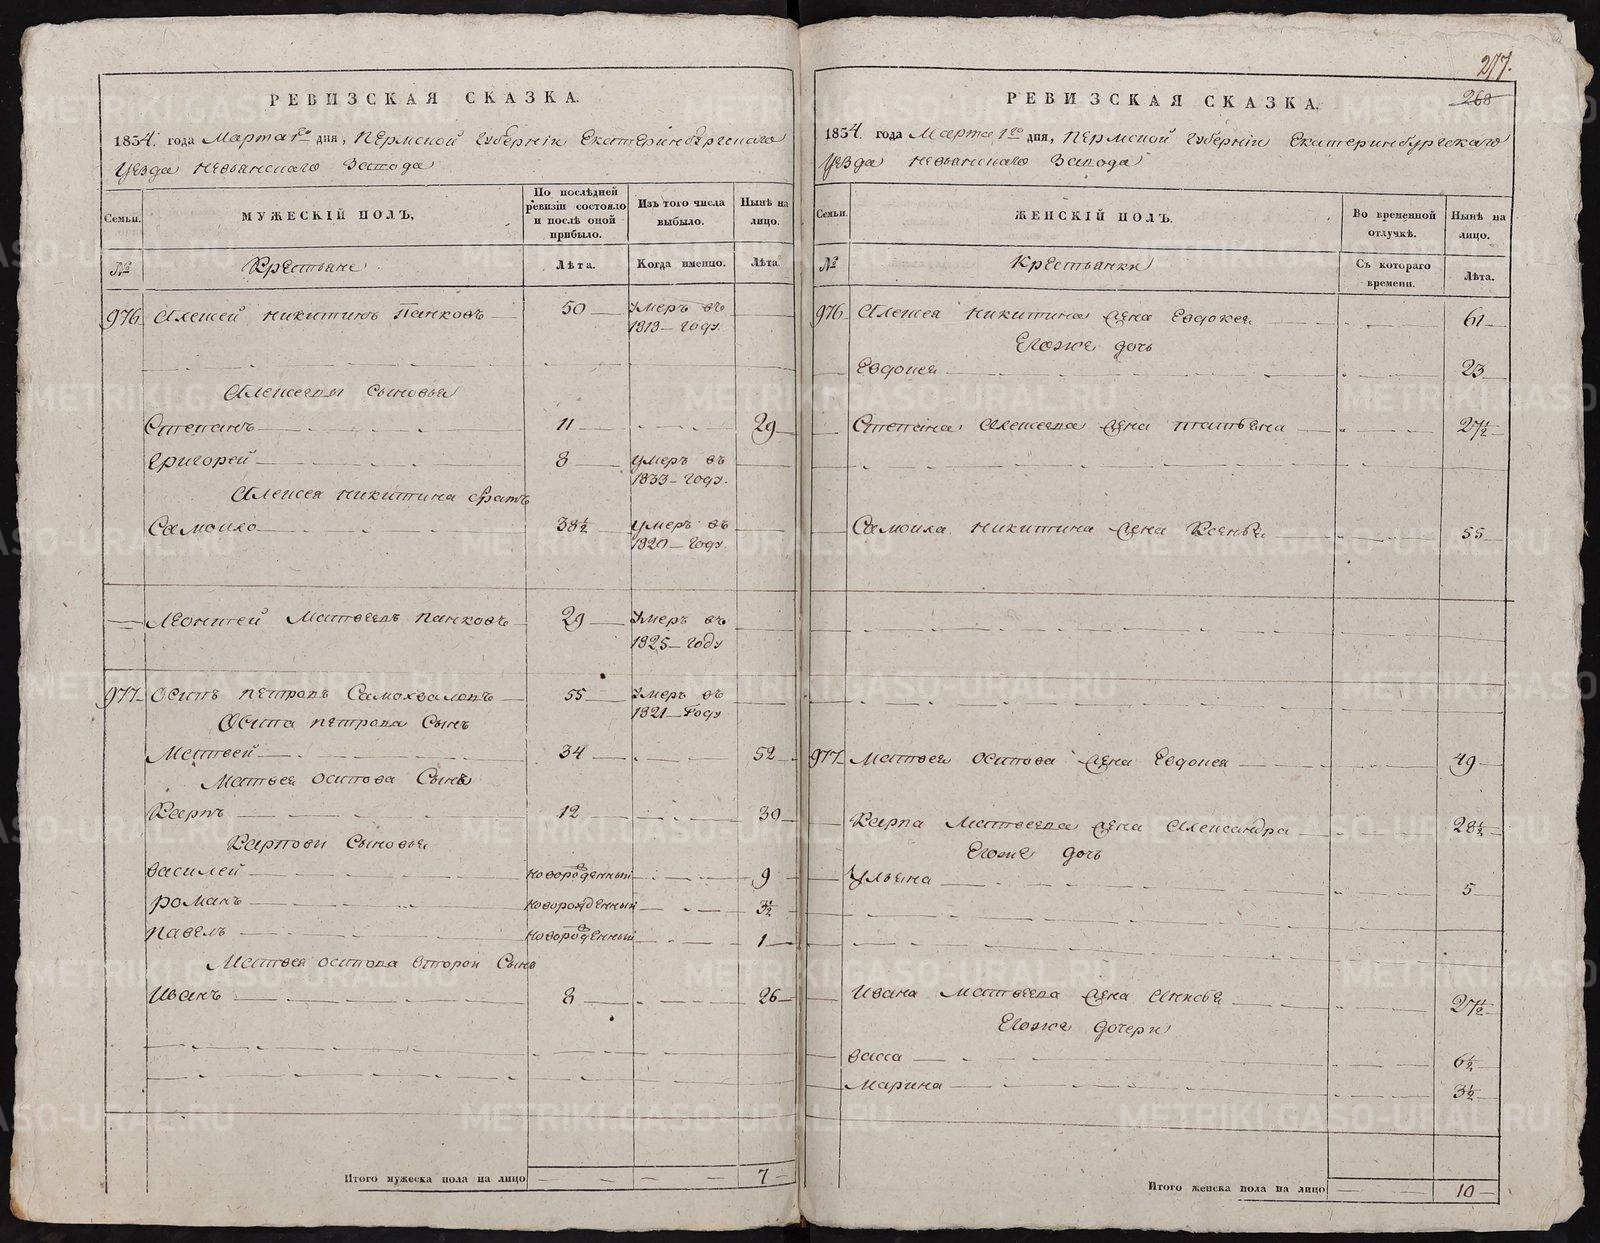 277.
268
РЕВИЗСКАЯ СКАЗКА.
1834. года Марта 1го дня, Пермской Губернiи Екатеринбургскаго
Уезда Невьянскаго Завода
Семьи.
МУЖЕСКIЙ ПОЛЪ,
По послѣдней ревизiи состояло и послѣ оной прибыло.
Изъ того числа выбыло.
Нынѣ на лицо.
№
Крестьяне
Лѣта.
Когда именно.
Лѣта.
976 Алексей Никитинъ Панковъ 50 Умеръ въ
1819 году
Алексеевы сыновья
Степанъ 11 29
Григорей 8 умеръ въ
1833 году.
Алексея Никитина братъ
Самойло 38½ умеръ въ
1820 году.
Леонтей Матвеевъ Панковъ 29 Умеръ въ
1825 году
977 Осипъ Петровъ Самохваловъ 55 Умеръ въ
1821 Году
Осипа Петрова Сынъ
Матвей 34 52
Матвея Осипова Сынъ
Карпъ 12 30
Карповы Сыновья
Василей новорожденный 9
Романъ новорожденный 3½
Павелъ новорожденный 1
Матвея Осипова второй Сынъ
Иванъ 8 26
Итого мужеска пола на лицо 7
РЕВИЗСКАЯ СКАЗКА.
1834. года Марта 1го дня, Пермской Губернiи Екатеринбургскаго
Уезда Невьянскаго Завода
Семьи.
ЖЕНСКIЙ ПОЛЪ.
Во временной отлучкѣ.
Нынѣ на лицо.
№
Крестьянки
Съ котораго времени.
Лѣта.
976 Алексея Никитина жена Евдокея 61
Егоже дочь
Евдокея 23
Степана Алексеева жена Татьяна 27½
Самойла Никитина жена Ксенья 55
977 Матвея Осипова жена Евдокея 49
Карпа Матвеева жена Александра 28½
Егоже дочь
Ульяна 5
Ивана Матвеева жена Анисья 27½
Егоже дочери
Васса 6½
Марина 3½
Итого женска пола на лицо 10
METRIKI.GASO-URAL.RU